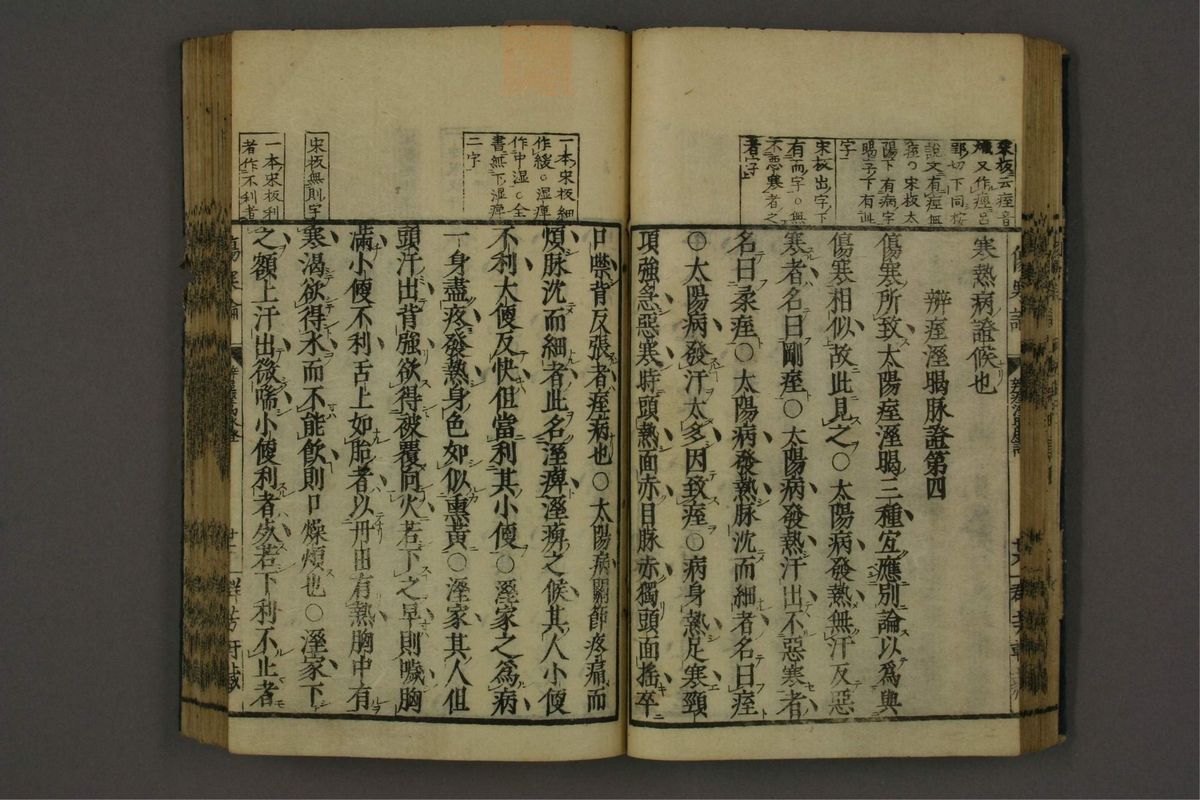 宋板云痓音
熾又作痙巨
郢切下同按
說文有痙無
痓〇宋板太
陽下有病字
暍字下有
字
宋板出字下
有而字〇無
不惡寒者之
者字上
寒熱病證候也
辨痓溼暍脉證第四
傷寒所致太陽痓溼暍三種宜應別論以爲與
傷寒相似故此見之〇太陽病發熱無汗反惡
寒者名曰剛痓〇太陽病發熱汗出不惡寒者
名曰柔痓〇太陽病發熱脉沈而細者名曰痓
〇太陽病發汗太多因致痓〇病身熱足寒頸
項強急惡寒時頭熱面赤目脉赤獨頭面搖卒
一本宋板細
作緩〇湿痺
作中湿〇全
書無下湿痺
二字
宋板無則字
一本宋板利
者作不利者
口噤背反張者痓病也〇太陽病關節疼痛而
煩脉沈而細者此名溼痺溼痺之候其人小便
不利大便反快但當利其小便〇溼家之爲病
一身盡疼發熱身色如似熏黃〇溼家其人但
頭汗出背強欲得被覆向火若下之早則噦胸
滿小便不利舌上如胎者以丹田有熱胸中有
寒渴欲得水而不能飲則口燥煩也〇溼家下
之額上汗出微喘小便利者死若下利不止者
傷寒論